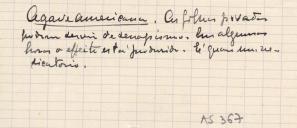 Agave americana. As folhas pisadas
podem servir de sinapismo. Em algumas
horas o efeito está produzido. É quasi um ve-
sicatorio.
AS 367